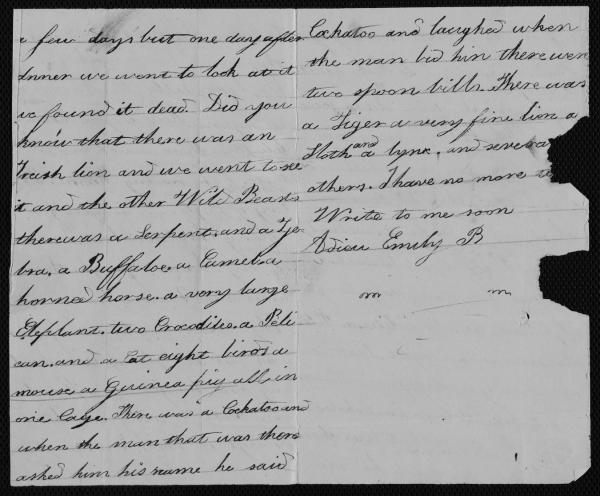 a few days but one day after
dinner we went to look at it
we found it dead. Did you
know that there was an
Irish lion and we went to see
it and the other Wild Beasts
there was a Serpent. and a Ze-
bra. a Buffaloe. a Camel. a
horned horse. a very large
Elephant. two Crocodiles. a Peli
can. and a Cat eight birds a
mouse a Guinea pig all in
one Cage. There was a Cockatoo and
when the man that was there
asked him his name he said
Cockatoo and laughed when
the man bid him there were
two spoon bills. There was
a Tiger a very fine lion a
Sloth and a lynx. and severa
others. I have no more to
Write to me soon
Adieu Emily B